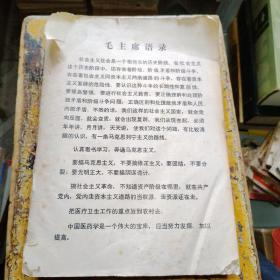 毛主席语录
社会主义社会是一个相当长的历史阶段。在社会主义
这个历史阶段中，还存在着阶级、阶级矛盾和阶级斗争，
存在着社会主义同资本主义两条道路的斗争，存在着资本
主义复辟的危险性。要认识这种斗争的长期性和复杂性。
要提高警惕。要进行社会主义教育。要正确理解和处理阶
级矛盾和阶级斗争问题，正确区别和处理敌我矛盾和人民
内部矛盾。不然的话，我们这样的社会主义国家，就会走
向反面，就会变质，就会出现复辟。我们从现在起，必须
年年讲，月月讲，天天讲，使我们对这个问题，有比较清
醒的认识，有一条马克思列宁主义的路线。
认真看书学习，弄通马克思主义。
要搞马克思主义，不要搞修正主义；要团结，不要分
裂；要光明正大，不要搞阴谋诡计。
搞社会主义革命，不知道资产阶级在哪里，就在共产
党内，党内走资本主义道路的当权派。走资派还在走。
把医疗卫生工作的重点放到农村去。
中国医药学是一个伟大的宝库，应当努力发掘，加以
提高。